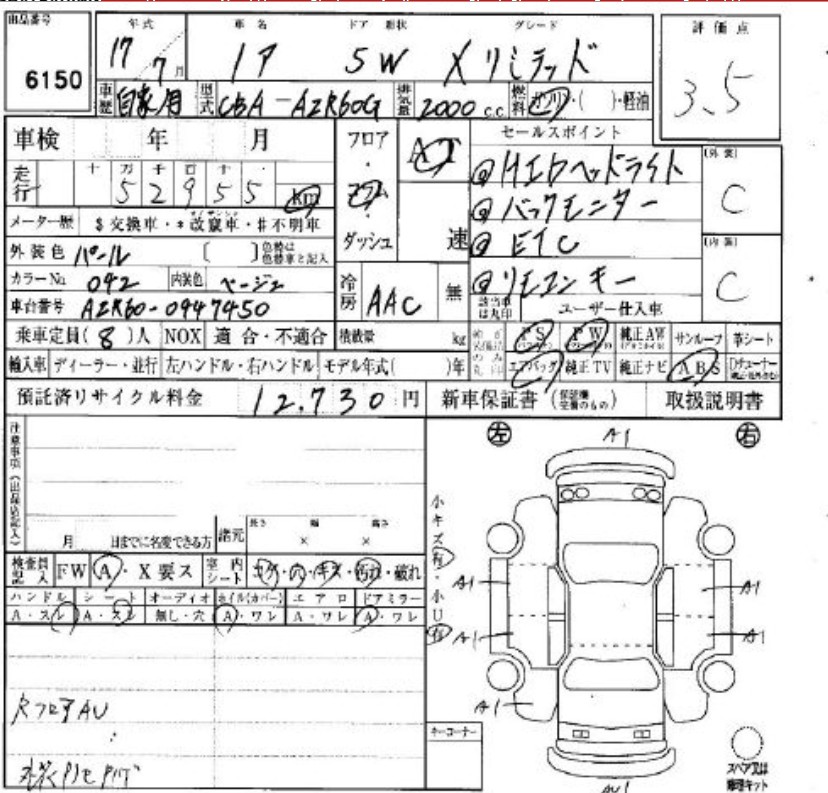 出品番号 年式 車名 ドア 形状 グレード 評価点
6150 17 7月 5W Xリミテッド 3.5
車歴 自家用 型式 CBA-AZR60G 排気量 2000 c.c. 燃料 ガソリン・( )・軽油
車検 年 月 フロア・コラム・ダッシュ AT 速 セールスポイント
走行 十 万 千 百 十 ・ (外装)
52955 km @HIDヘッドライト C
メーター歴 $交換車・*改竄車・#不明車 @バックモニター
外装色 パール 〔 〕 色替は色替車と記入 @ETC (内装)
カラーNo. 042 内装色 ベージュ 冷房 AAC 無 @リモコンキー C
車台番号 AZR60-0947450 該当車は丸印 ユーザー仕入車
乗車定員( 8 )人 NOX 適合・不適合 積載量 kg PS PW 純正AW サンルーフ 革シート
輸入車 ディーラー・並行 左ハンドル・右ハンドル モデル年式( )年 エアバッグ 純正TV 純正ナビ ABS
預託済リサイクル料金 12,730 円 新車保証書 取扱説明書
注意事項(出品店記入)
左 A1 右
月 日までに名変できる方 諸元 長さ × 幅 × 高さ
検査員記入 FW A・X要ス 室内シート コゲ・穴・キズ・汚れ・破れ
小キズ有・小U有
ハンドル シート オーディオ ホイル(カバー) エアロ ドアミラー
A・スレ A・スレ 無し・穴 A・ワレ A・ワレ A・ワレ
A1 A1
A1 A1
A1
Rフロア AU
キーコーナー
スペア又は修理キット